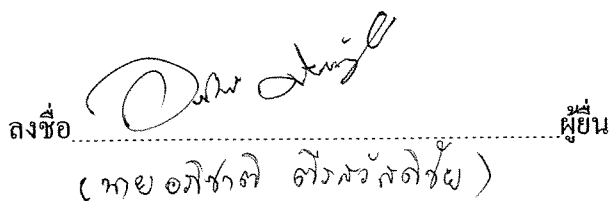 ลงชื่อ ผู้ยื่น
(นายอภิชาติ ตีรสวัสดิชัย)